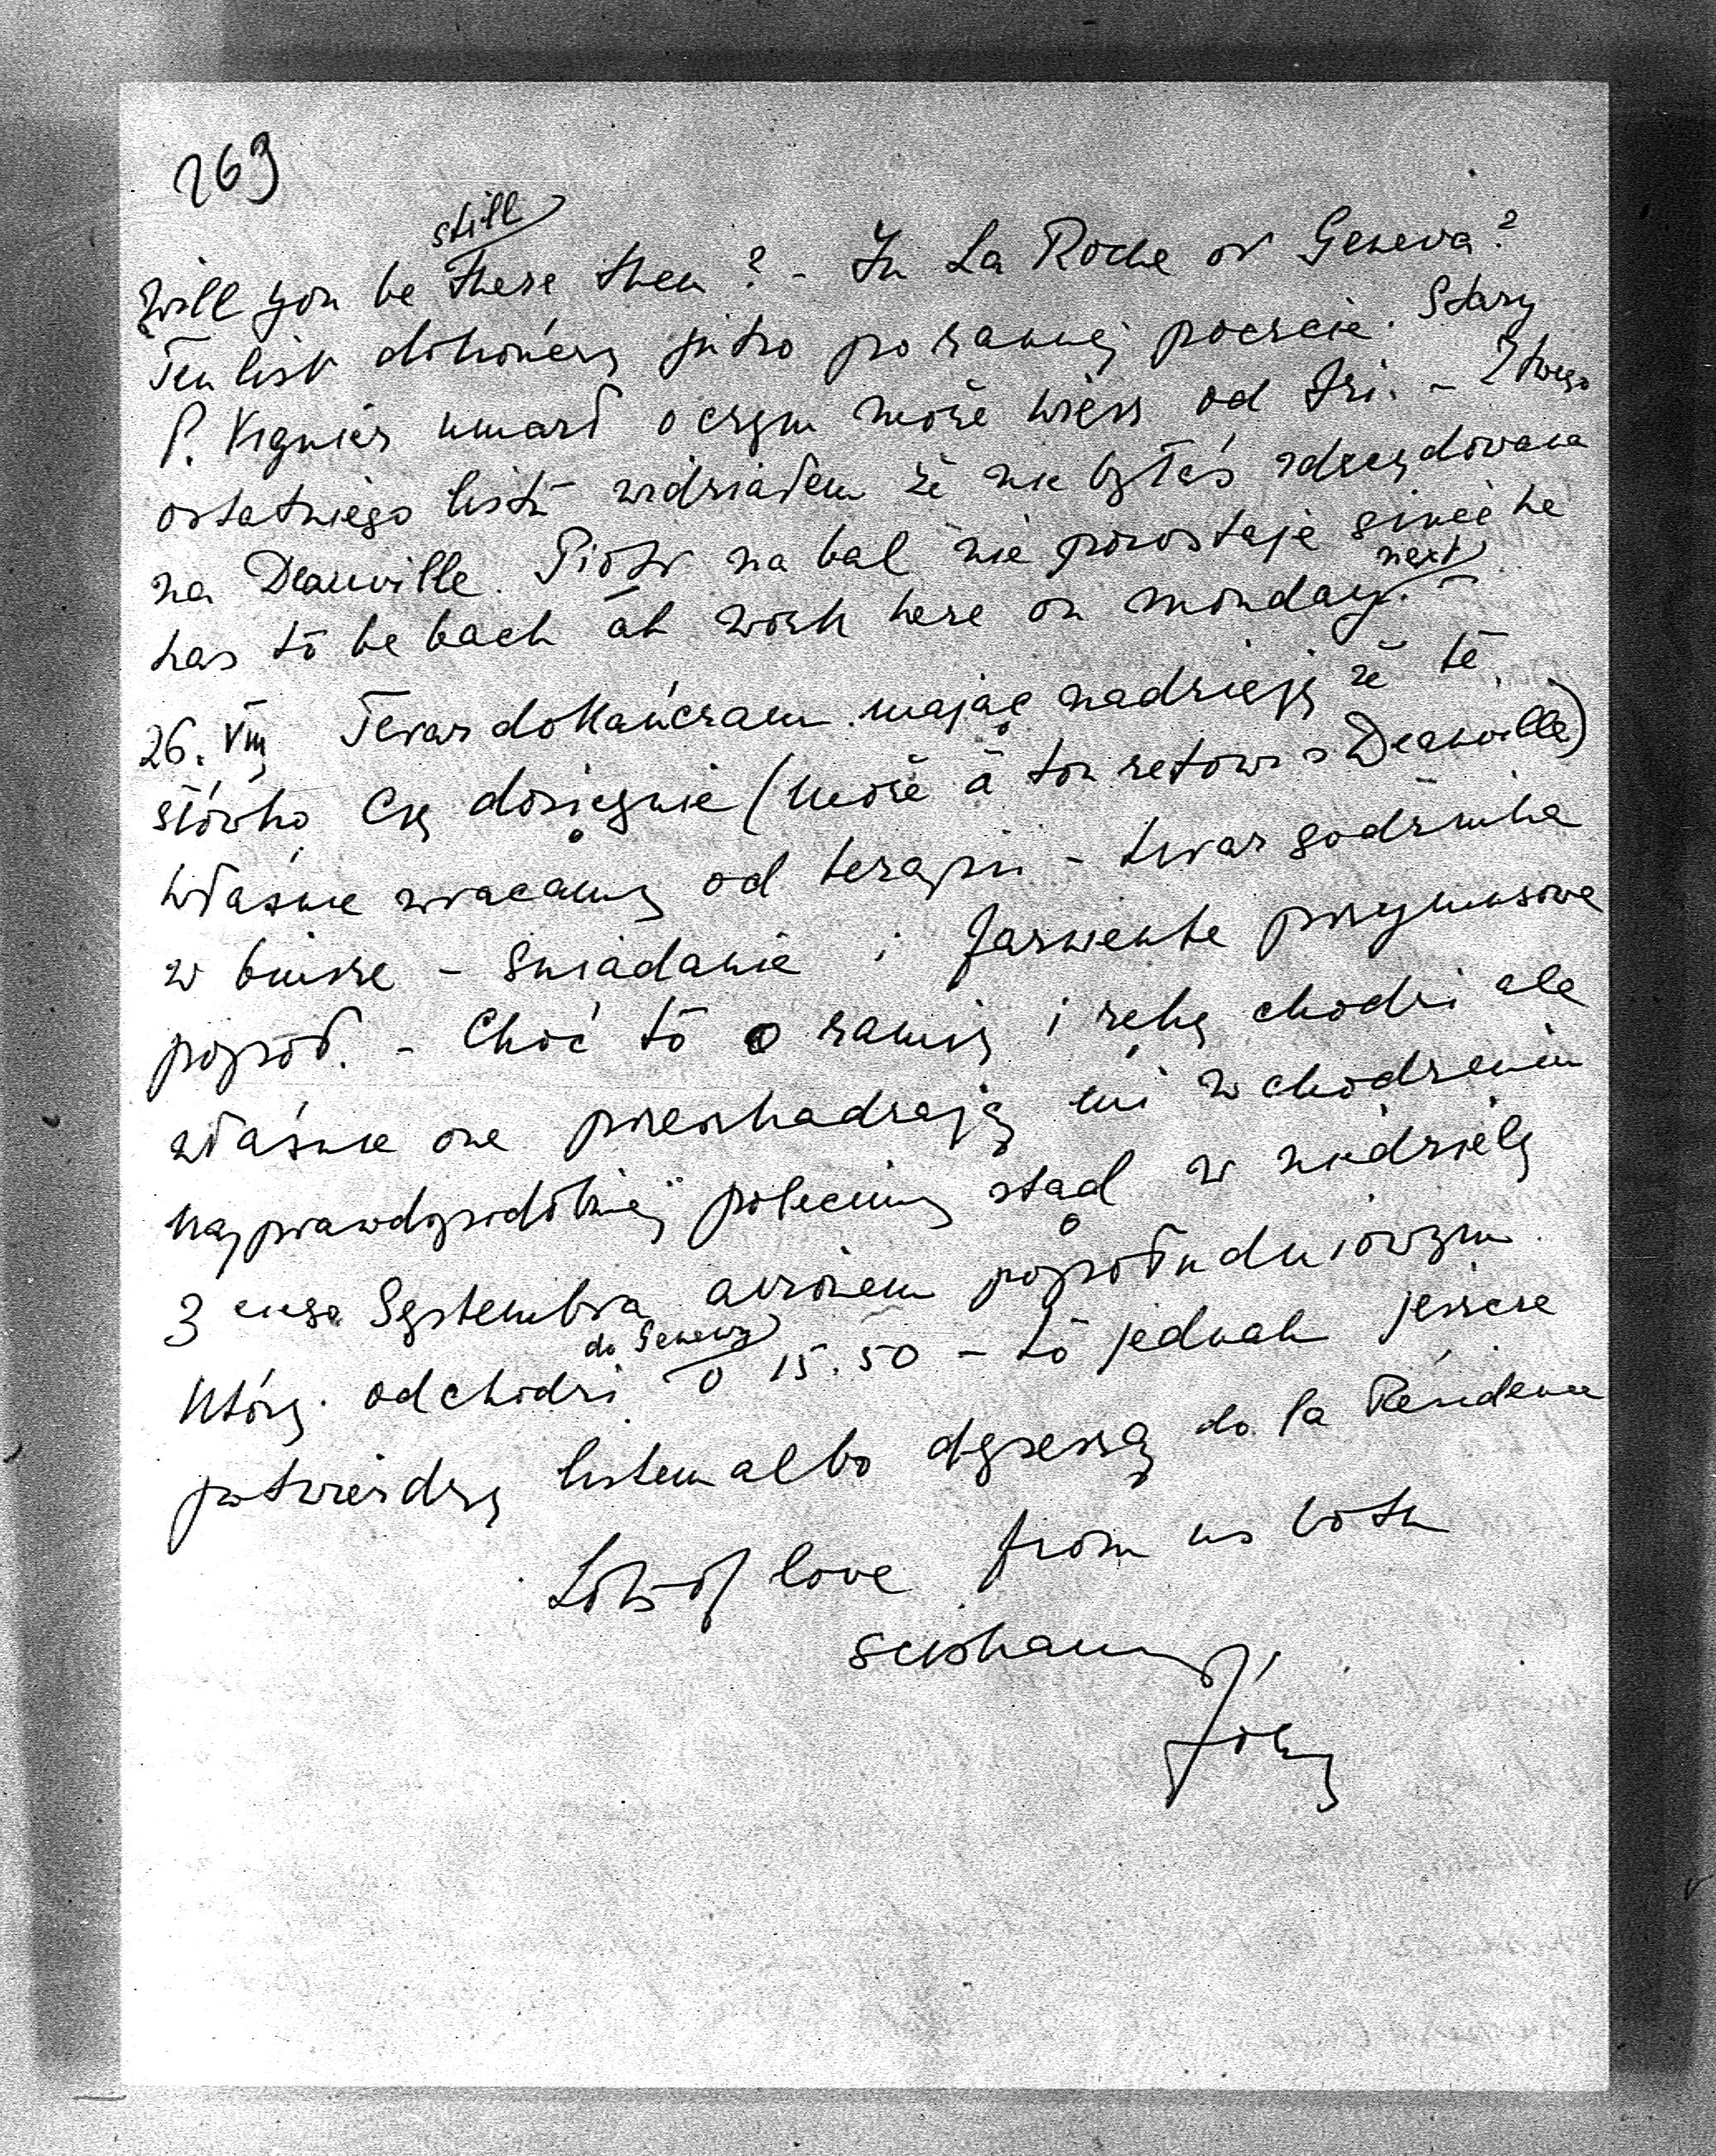 263
still
Will you be there then? - In La Roche or Geneva?
Ten list dokończę jutro po rannej poczcie. Stary
P. Vignier umarł o czym może wiesz od Iri. - Z twego
ostatniego listu widziałem że nie byłaś zdecydowana
na Deauville. Piotr na bal nie pozostaje since he
next
has to be back at work here on monday. -
26. VIII Teraz dokańczam mając nadzieję że te
słówka Cię dosięgnie (może à ton retour s Deauville)
właśnie wracamy od terapii - teraz godzinka
w biurze - śniadanie i przymusowa
popoł. - Choć to o ramię i rękę chodzi ale
właśnie one przeszkadzają mi w chodzeniu
Najprawdopodobniej polecimy stąd w niedzielę
3 ciego Septembra avionem popołudniowym
do Genewy
który odchodzi o 15.50 - to jednak jeszcze
potwierdzę listem albo depeszą do la Résidence
Lots of love from us both
ściskamy